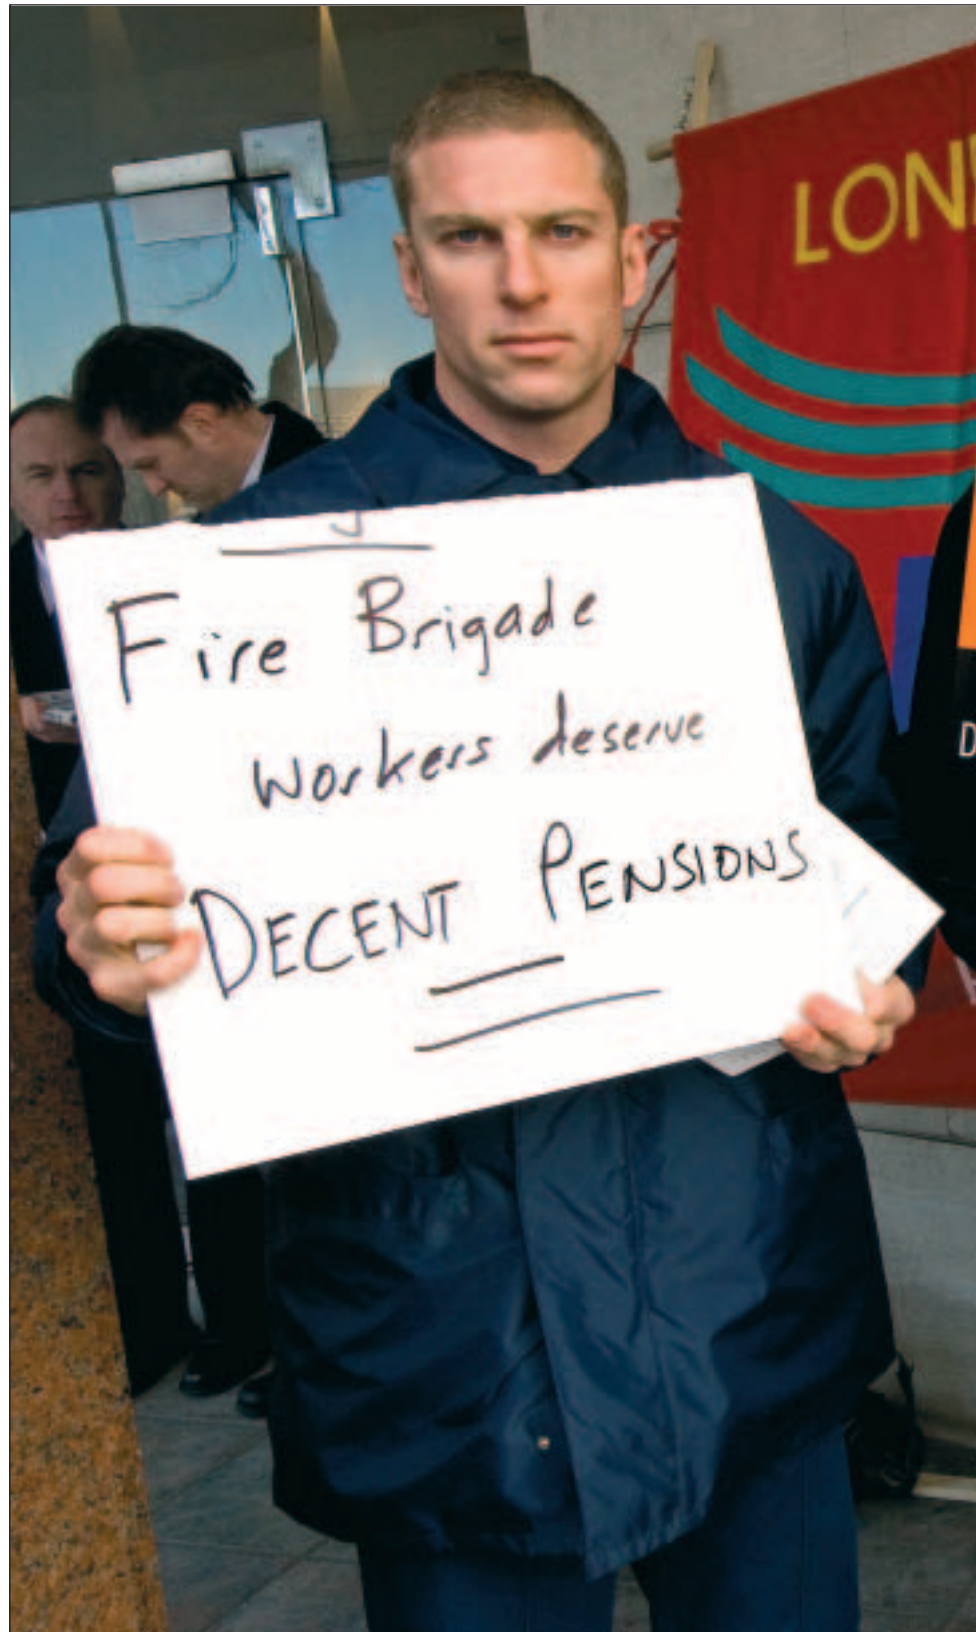 LON
Fire Brigade
workers deserve
DECENT PENSIONS
D